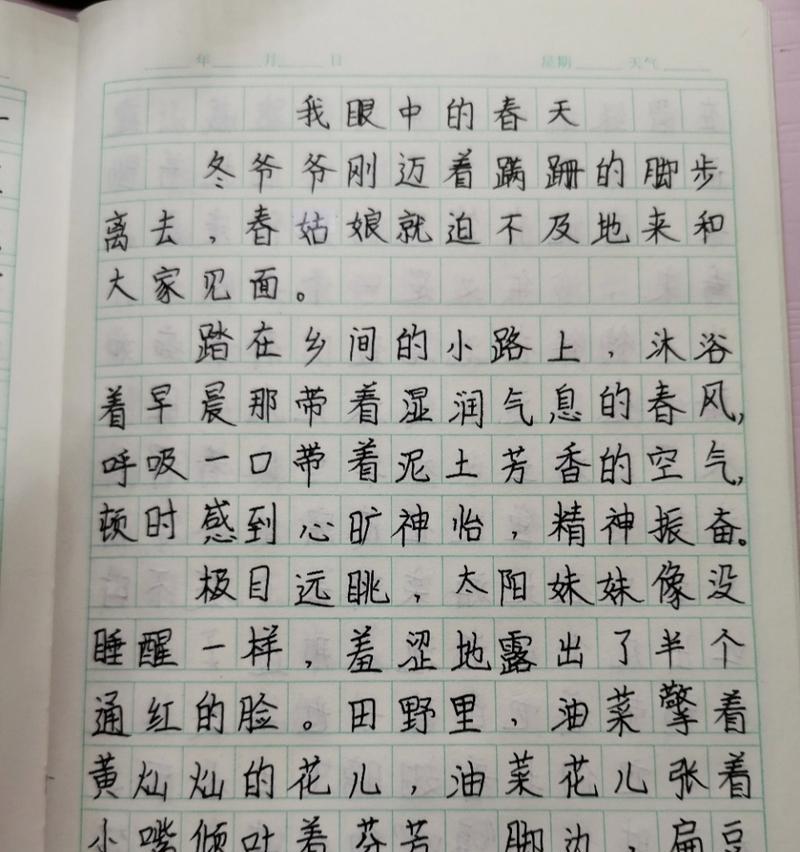 年 月 日 星期 天气
我眼中的春天
冬爷爷刚迈着蹒跚的脚步
离去，春姑娘就迫不及地来和
大家见面。
踏在乡间的小路上，沐浴
着早晨那带着湿润气息的春风，
呼吸一口带着泥土芳香的空气，
顿时感到心旷神怡，精神振奋。
极目远眺，太阳妹妹像没
睡醒一样，羞涩地露出了半个
通红的脸。田野里，油菜擎着
黄灿灿的花儿，油菜花儿张着
小嘴倾吐着芬芳。脚边，扁豆